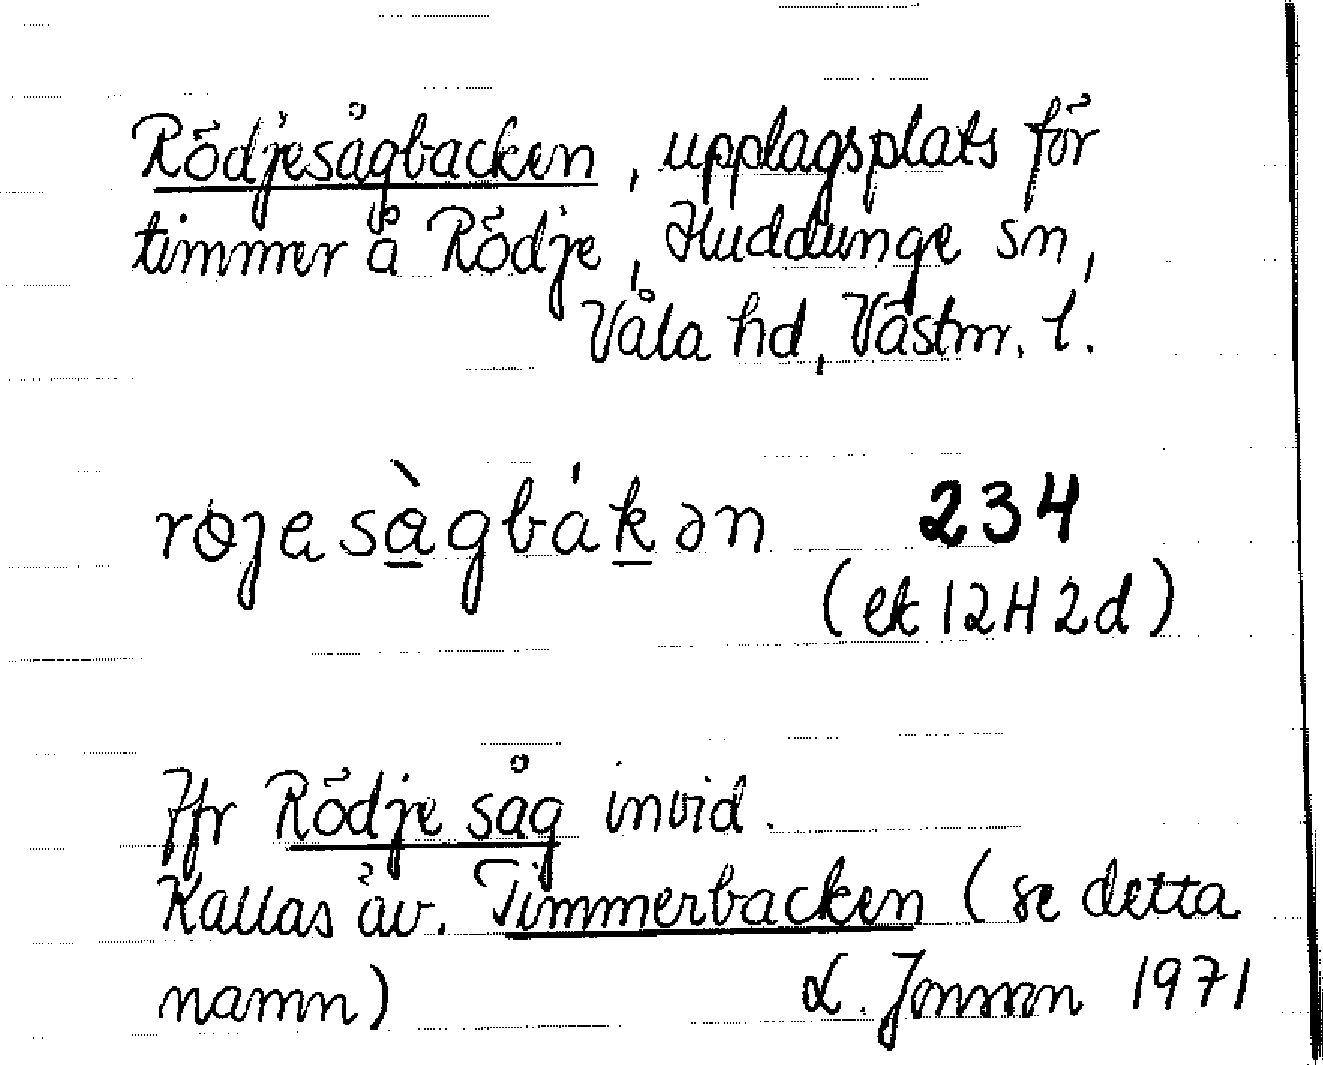 Rödjesågbacken, upplagsplats för
timmer å Rödje, Huddunge sn,
Våla hd, Västm. l.
røjesàgbákən 234
(ek 12H2d)
Jfr Rödje såg invid.
Kallas äv. Timmerbacken (se detta
namn) L. Jonsson 1971